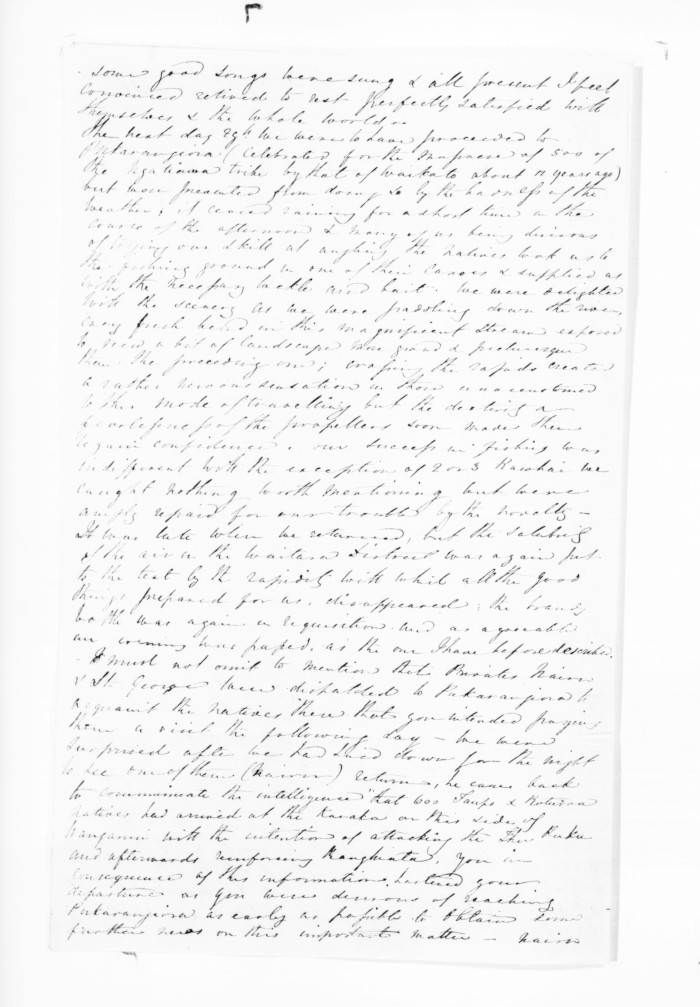 some good songs were sung & all present I feel
convinced retired to rest perfectly satisfied with
themselves & the whole world.
The next day 29th we were to have proceeded to
Pukarangiora (celebrated for the massacre of 500 of
the Ngatiawa tribe by that of Waikato about 12 years ago)
but were prevented from doing so by the badness of the
weather, it ceased raining for a short time in the
course of the afternoon & many of us being desirous
of trying our skill at angling the natives took us to
the fishing ground in one of their canoes & supplied us
with the necessary tackle and bait. We were delighted
with the scenery as we were paddling down the river
every fresh bend in this magnificent stream exposed
to view a bit of landscape more grand & picturesque
than the preceding one; crossing the rapids created
a rather nervous sensation in those unaccustomed
to this mode of travelling but the dexterity &
of the propellers soon made them
regain confidence. our success in fishing was
indifferent with the exception of 2 or 3 Kawhai we
caught nothing worth mentioning but were
amply repaid for our trouble by the novelty –
It was late when we returned, but the salubrity
of the air in the Waitara District was again put
to the test by the rapidity with which all the good
things prepared for us, disappeared; the brandy
bottle was again in requisition and as agreeable
an evening was passed, as the one I have before described.
- I must not omit to mention that Privates Nairn
& St. George were dispatched to Pukarangiora to
acquaint the natives there that you intended paying
them a visit the following day – We were
surprised after we had laid down for the night
to see one of them (Nairn) return, he came back
to communicate the intelligence "that 600 Taupo & Roturoa
natives had arrived at the Karaka on this side of
Wanganui with the intention of attacking the Ihu Puku
and afterwards reinforcing Rangihiata, You in
consequence of this information hastened your
departure as you were desirous of reaching
Pukarangiora as early as possible to obtain some
further news on this important matter – Nairn